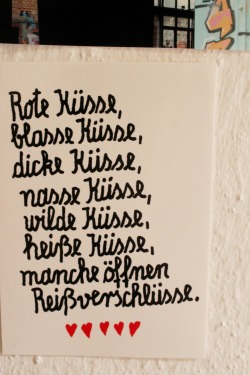 Rote Küsse,
blasse Küsse,
dicke Küsse,
nasse Küsse,
wilde Küsse,
heiße Küsse,
manche öffnen
Reißverschlüsse.